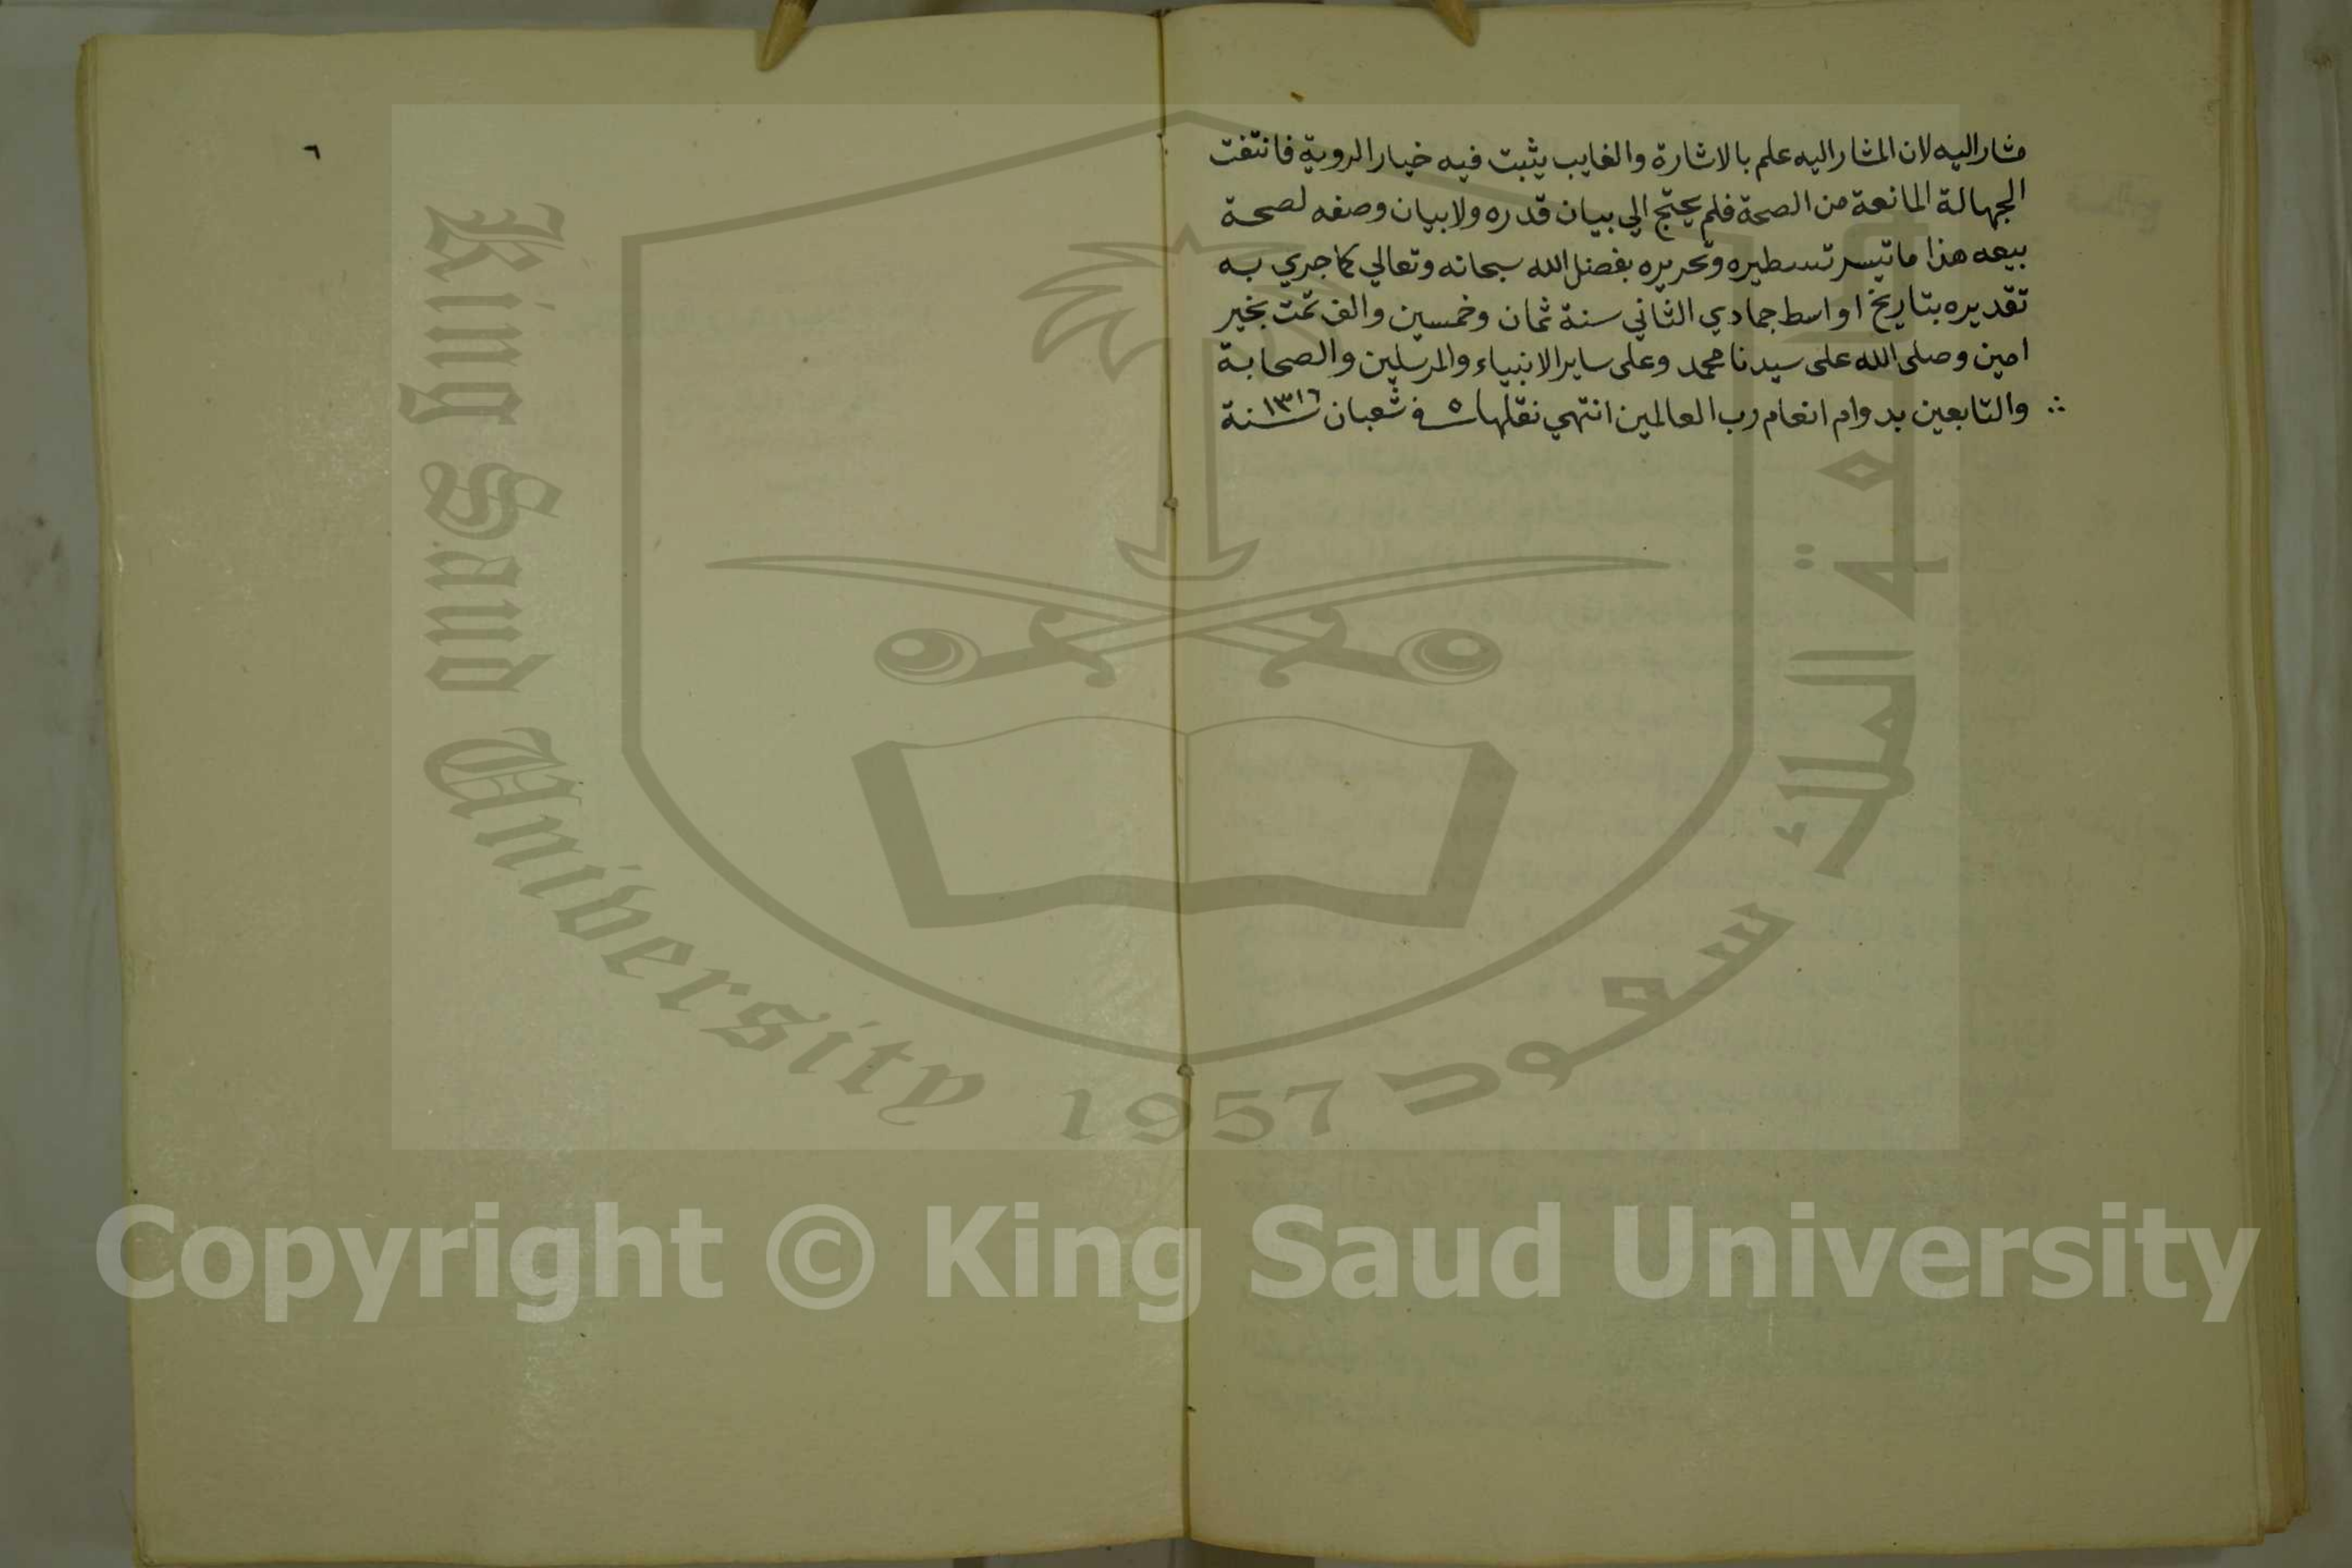 مشار اليه لان المشار اليه علم بالاشارة والغايب يثبت فيه خيار الروية فانتفت
الجهالة المانعة من الصحة فلم يحتج الي بيان قدره ولا بيان وصفه لصحة
بيعه هذا ما تيسر تسطيره وتحريره بفضل الله سبحانه وتعالي كما جري به
تقديره بتاريخ اواسط جمادي الثاني سنة ثمان وخمسين والف تمت بخير
امين وصلى الله على سيدنا محمد وعلى ساير الانبياء والمرسلين والصحابة
والتابعين بدوام انعام رب العالمين انتهي نقلها في ٥ شعبان سنة ١٣١٦
٦
King Saud University
1957
جامعة الملك سعود
Copyright © King Saud University